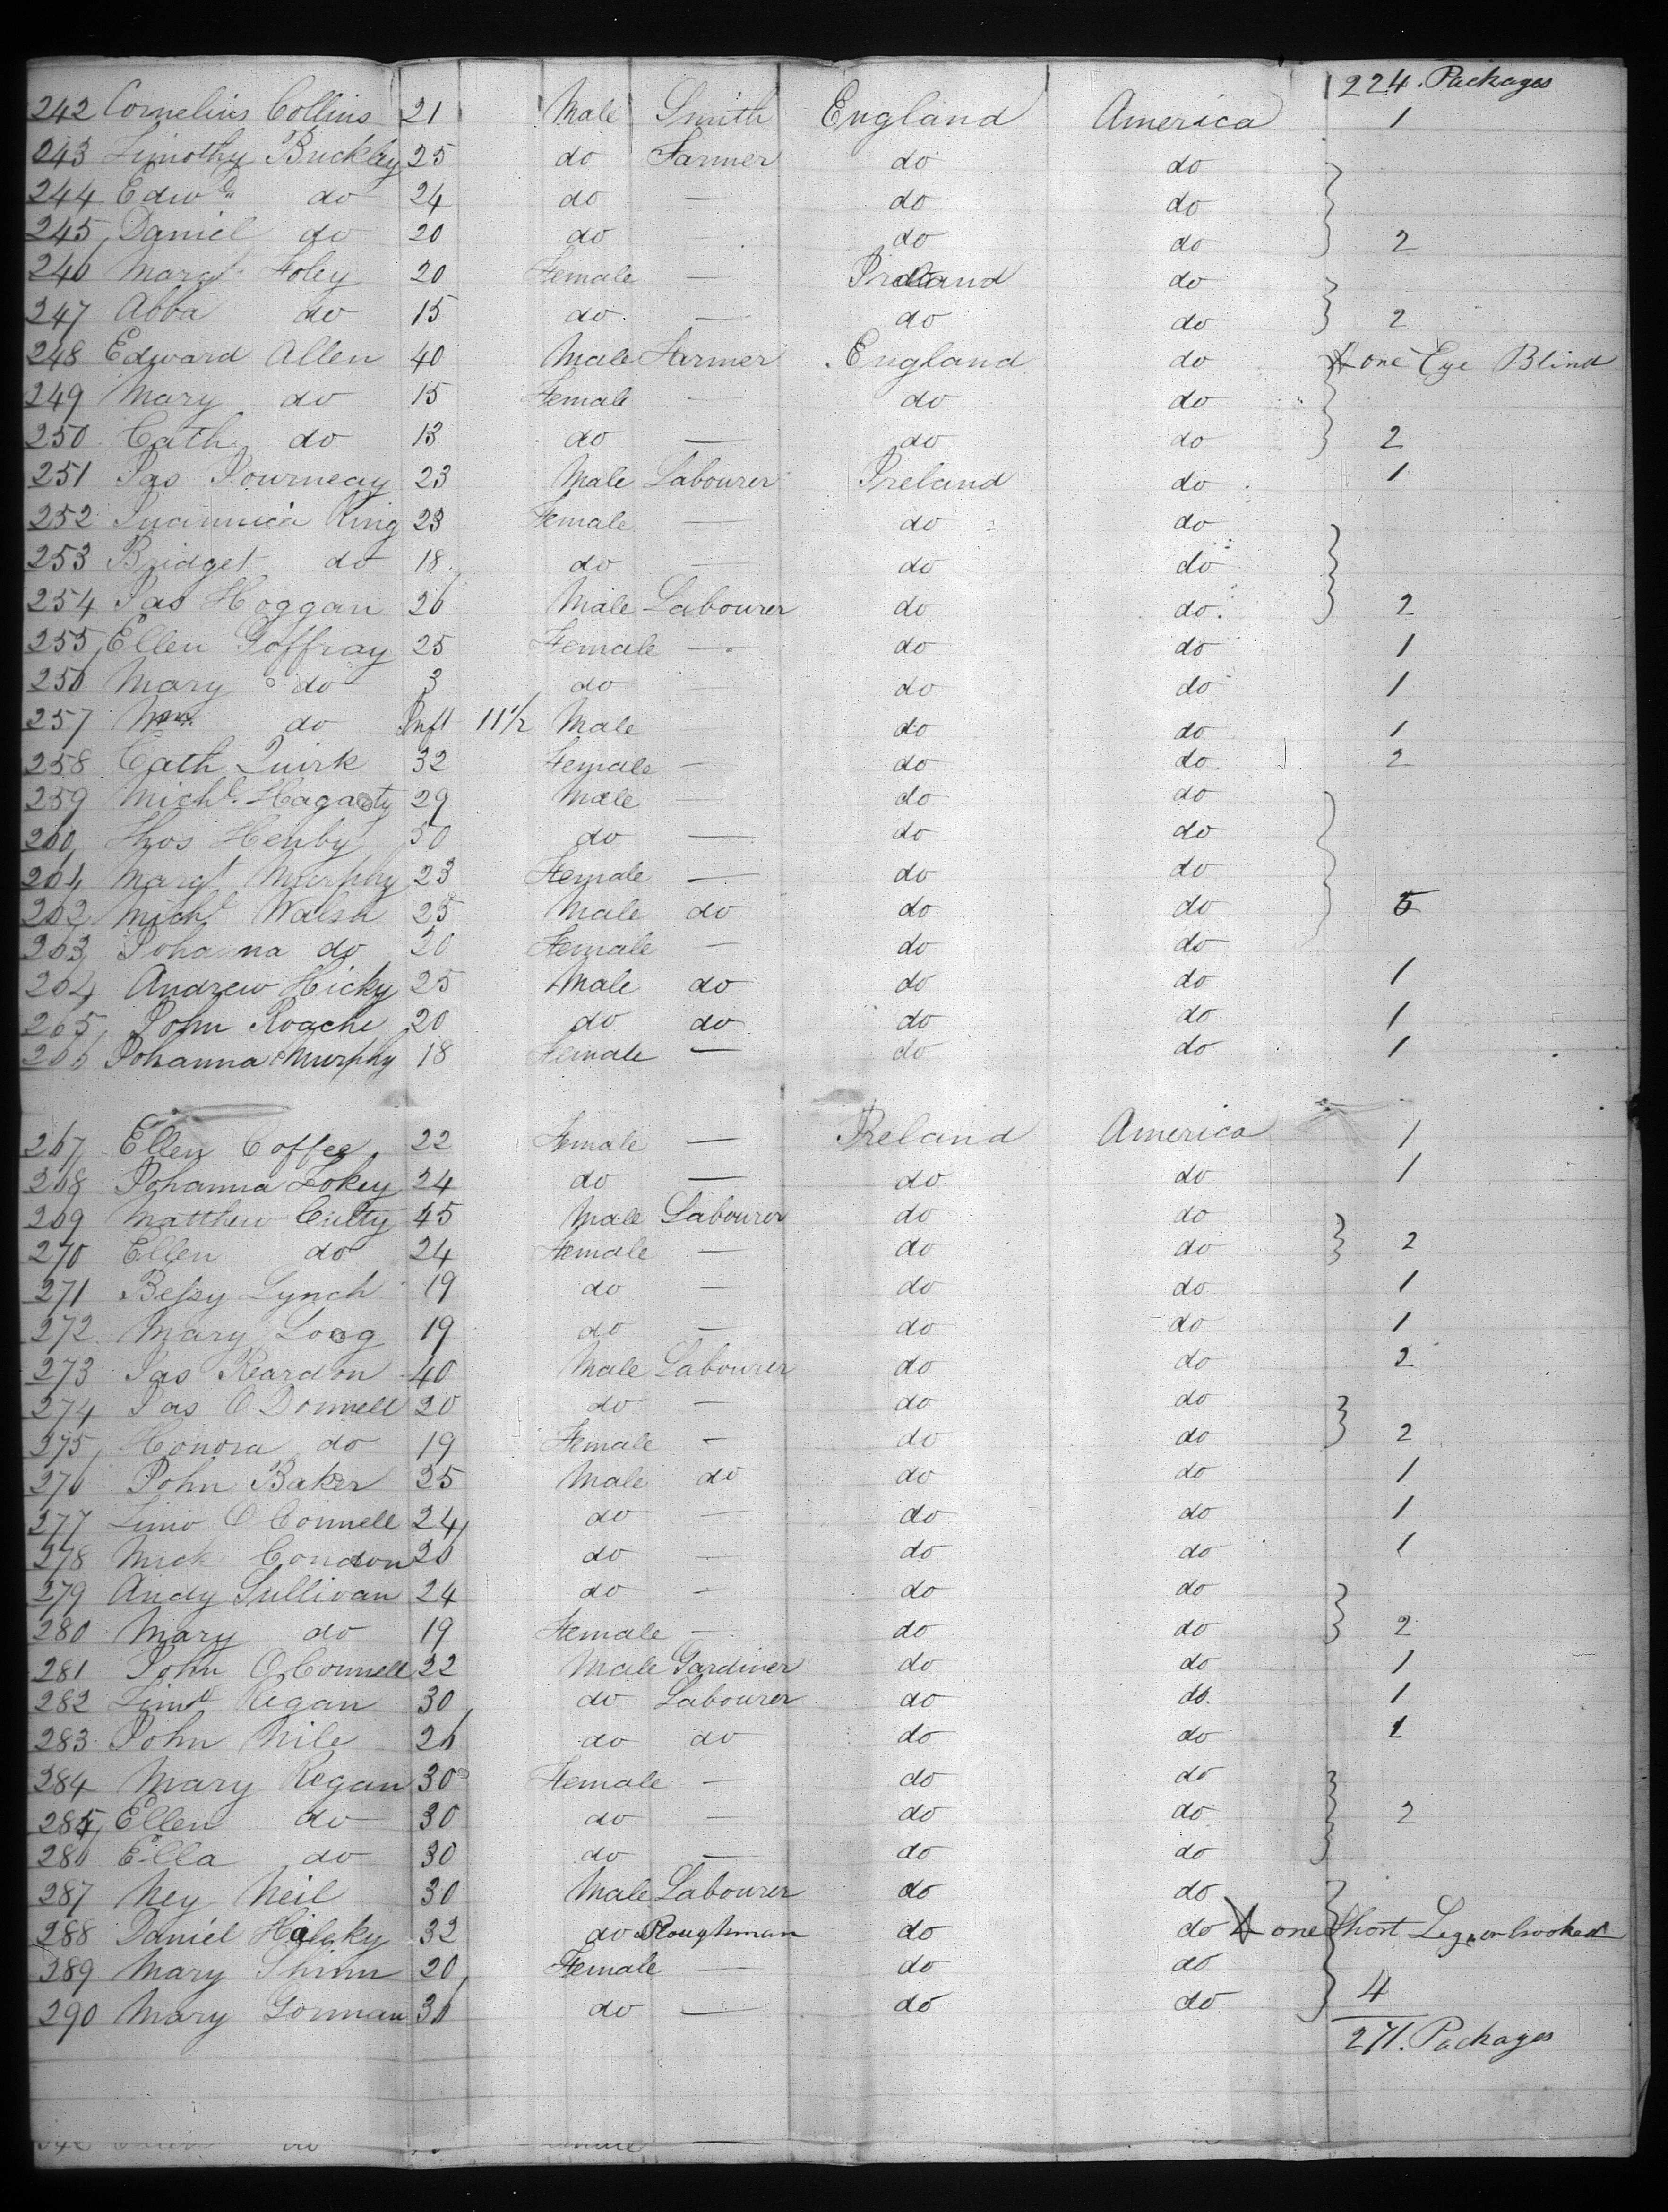 224. Packages
242 Cornelius Collins 21 Male Smith England America 1
243 Timothy Buckley 25 do Farmer do do
244 Edwd do 24 do — do do
245 Daniel do 20 do do do 2
246 Margt Foley 20 Female — Ireland do
247 Abba do 15 do — do do 2
248 Edward Allen 40 Male Farmer England do one Eye Blind
249 Mary do 15 Female - do do
250 Cath do 13 do — do do 2
251 Jas 23 Male Labourer Ireland do 1
252 King 23 Female — do do
253 Bridget do 18 do — do do
254 Jas Hoggan 26 Male Labourer do do 2
255 Ellen Joffray 25 Female — do do 1
256 Mary do 3 do — do do 1
257 do Inft 11½ Male do do 1
258 Cath Quirk 32 Female — do do 2
259 Michl. Hagarty 29 Male — do do
260 Thos Henby 50 do — do do
261 Margt Murphy 23 Female — do do
262 Michl Walsh 25 Male do do do 5
263 Johanna do 20 Female — do do
264 Andrew Hicky 25 Male do do do 1
265 John Roache 20 do do do do 1
266 Johanna Murphy 18 Female — do do 1
267 Ellen Coffee 22 Female — Ireland America 1
268 Johanna Lokey 24 do — do do 1
269 Matthew Culty 45 Male Labourer do do
270 Ellen do 24 Female — do do 2
271 Bessy Lynch 19 do — do do 1
272 Mary 19 do — do do 1
273 Jas Reardon 40 Male Labourer do do 2
274 Jas O Donnell 20 do — do do
275 Honora do 19 Female — do do 2
276 John Baker 25 Male do do do 1
277 Timo O Connell 24 do — do do 1
278 Mick Condon 26 do — do do 1
279 Andy Sullivan 24 do — do do
280 Mary do 19 Female — do do 2
281 John O Connell 22 Male Gardiner do do 1
282 Regan 30 do Labourer do do 1
283 John Nile 26 do do do do 1
284 Mary Regan 30 Female — do do
285 Ellen do 30 do — do do 2
286 Ella do 30 do — do do
287 Ney Neil 30 Male Labourer do do
288 Daniel 32 do Ploughman do do one Short Leg or crooked
289 Mary 20 Female — do do
290 Mary Gorman 36 do — do do 4
271. Packages